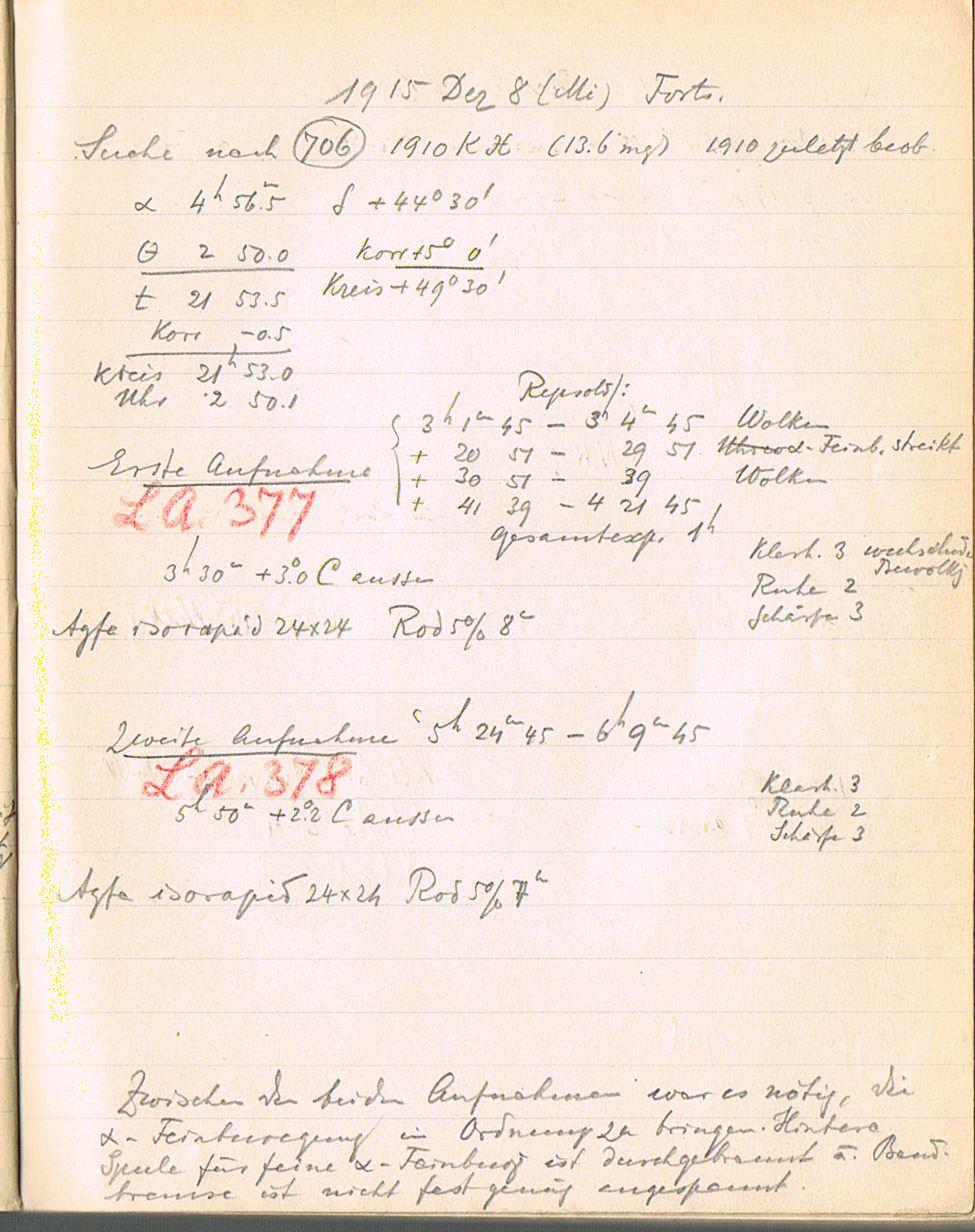 1915 Dez 8 (Mi) Forts.
Suche nach (706) 1910 KX (13.6 mg) 1910 zuletzt beob.
α 4h 56m.5 δ +44° 30'
θ 2 50.0 Korr +5° 0'
t 21 53.5 Kreis +49° 30'
Korr -0.5
Kreis 21h 53.0
Uhr 2 50.1
Repsold/:
3h 1m 45 – 3h 4m 45 Wolken
+ 20 51 – 29 51 α-Feinb. streikt
Erste Aufnahme + 30 51 – 39 Wolken
LA. 377 + 41 39 – 4 21 45
Gesamtexp. 1h
3h 30m +3°.0 C aussen Klarh. 3 wechselnde Bewölkg
Ruhe 2
Schärfe 3
Agfa isorapid 24x24 Rod 5% 8m
Zweite Aufnahme 5h 24m 45 – 6h 9m 45
LA. 378
Klarh. 3
5h 50m +2°.2 C aussen Ruhe 2
Schärfe 3
Agfa isorapid 24x24 Rod 5% 7m
Zwischen den beiden Aufnahmen war es nötig, die
α-Feinbewegung in Ordnung zu bringen. Hintere
Spule für feine α-Feinbwg ist durchgebrannt u. Band-
bremse ist nicht fest genug angespannt.